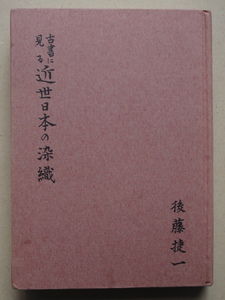 古書に見る
近世日本の染織
後藤捷一